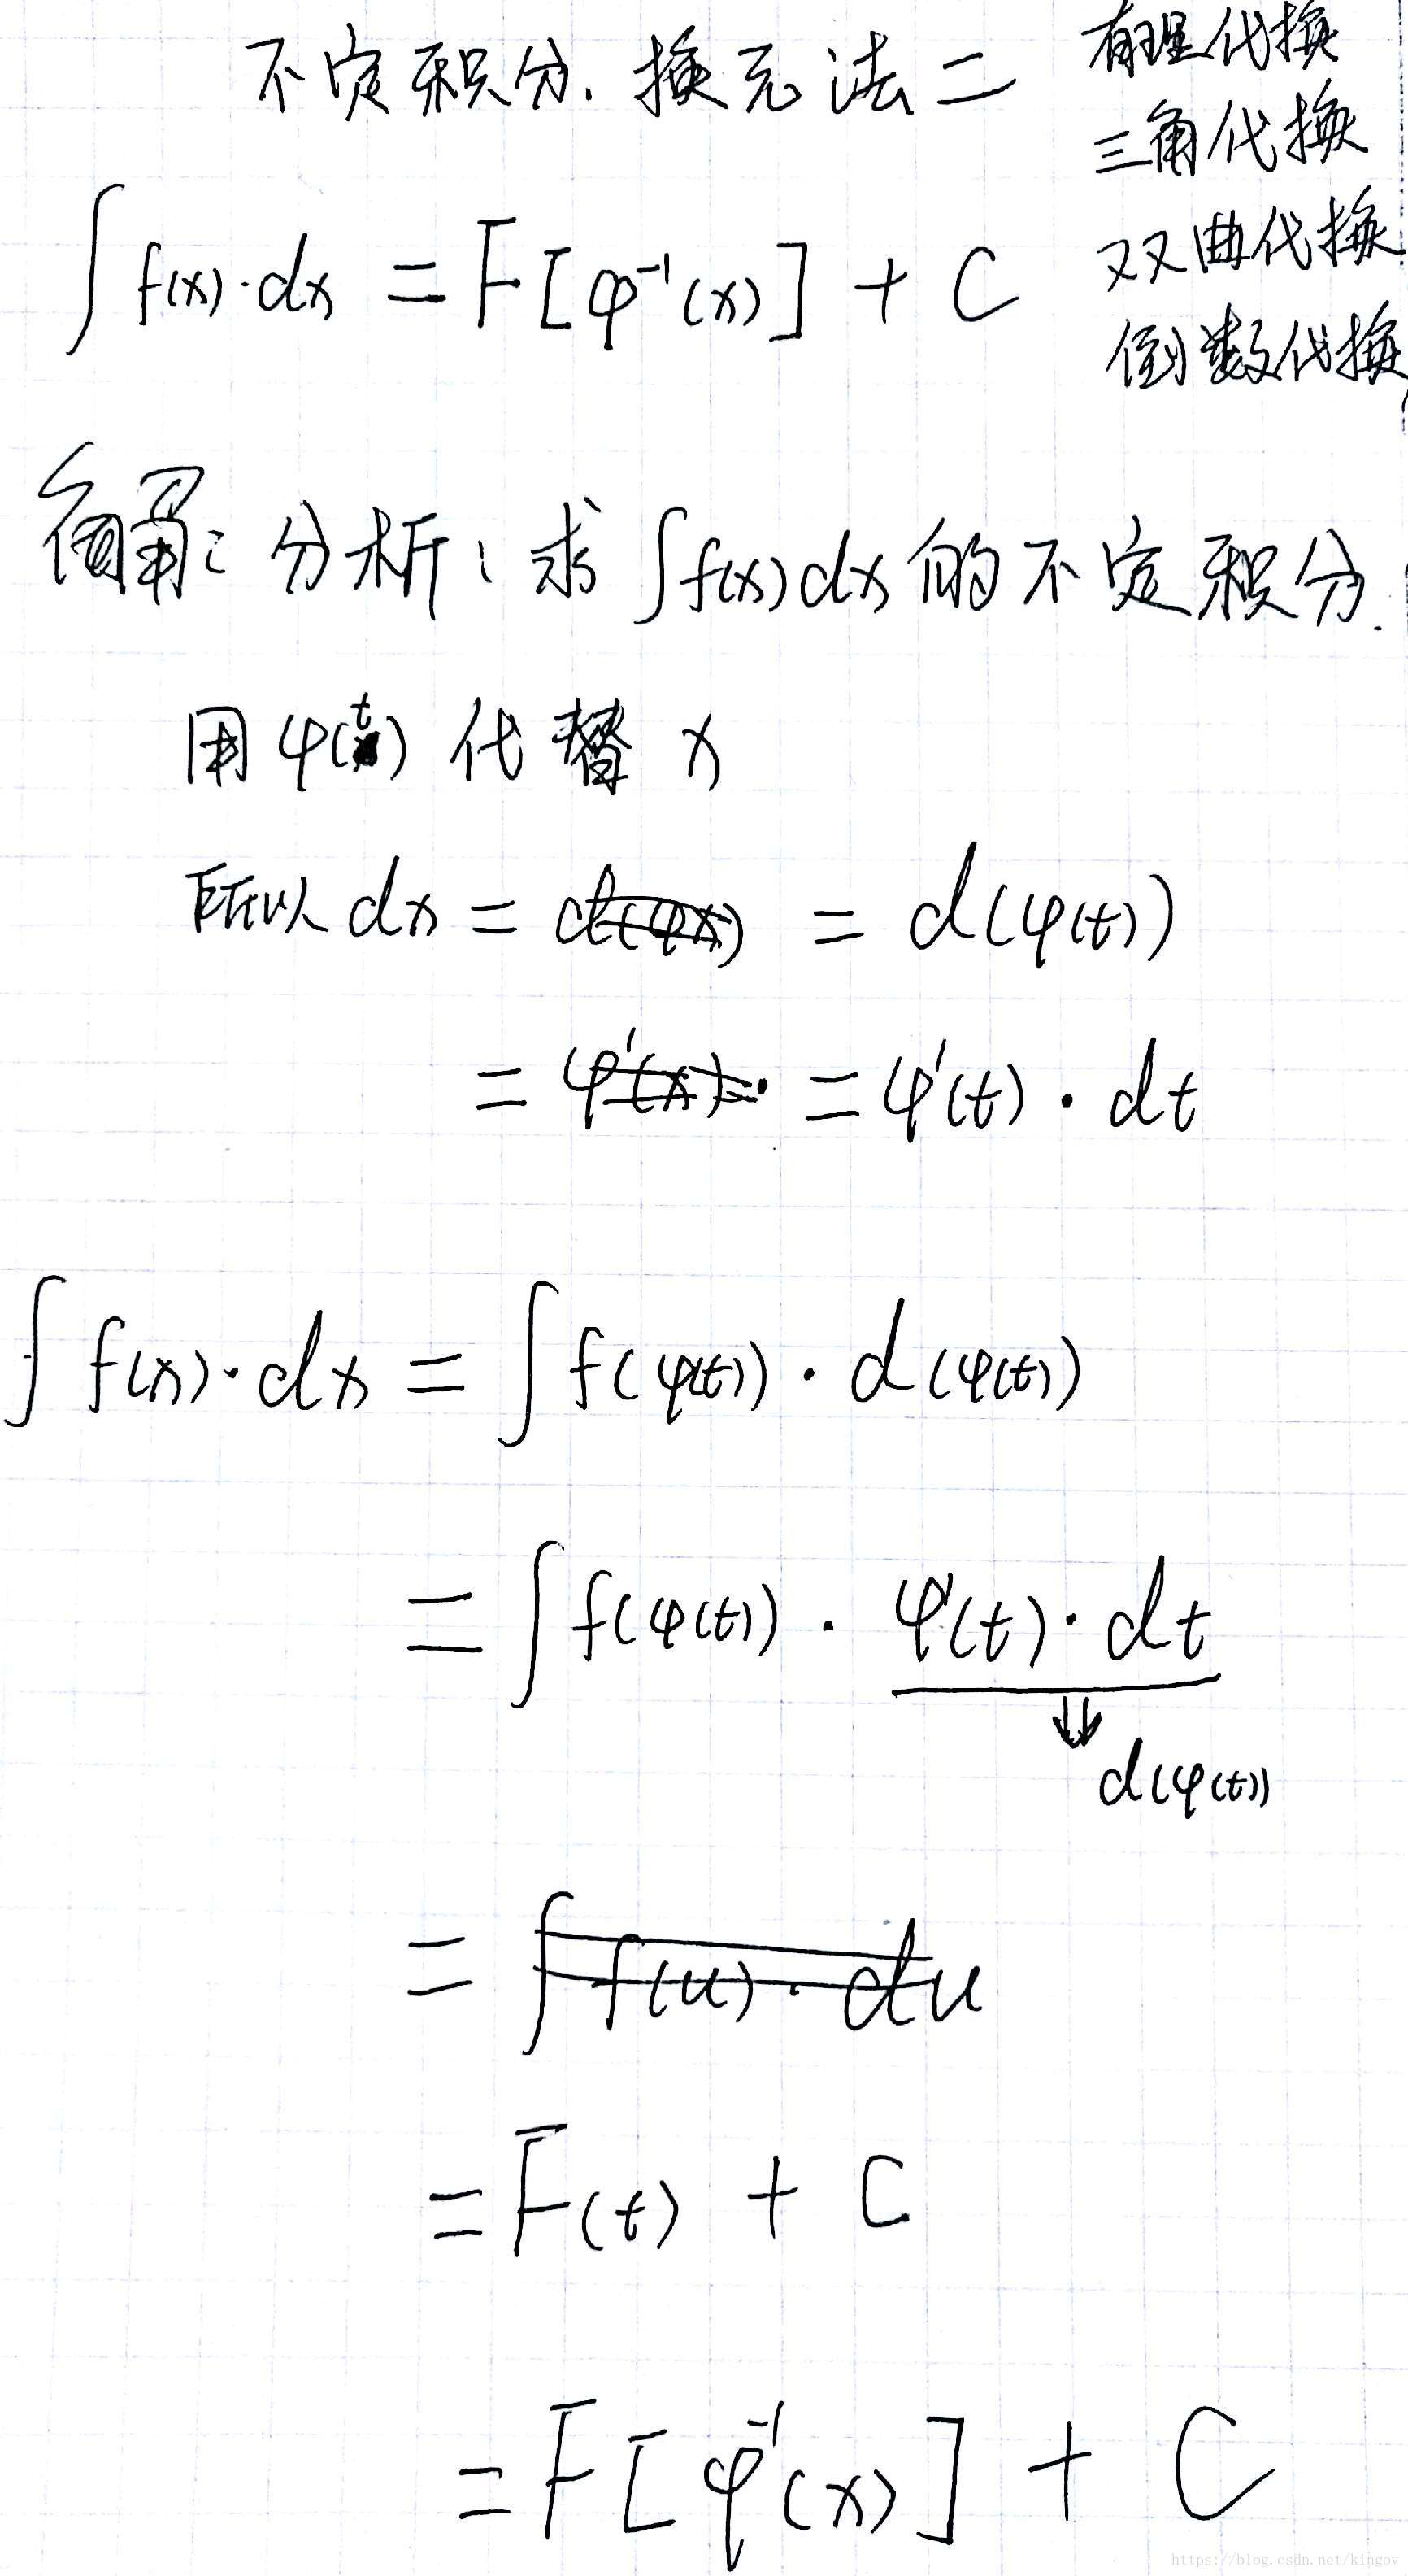 不定积分. 换元法二
有理代换
三角代换
双曲代换
倒数代换
∫ f(x)·dx = F[φ⁻¹(x)] + C
解: 分析: 求 ∫f(x)dx 的不定积分.
用 φ(t) 代替 x
所以 dx = d(φx) = d(φ(t))
= φ'(x)· = φ'(t)·dt
∫ f(x)·dx = ∫ f(φ(t))·d(φ(t))
= ∫ f(φ(t))·φ'(t)·dt
⇓
d(φ(t))
= ∫ f(u)·du
= F(t) + C
= F[φ⁻¹(x)] + C
https://blog.csdn.net/kingov